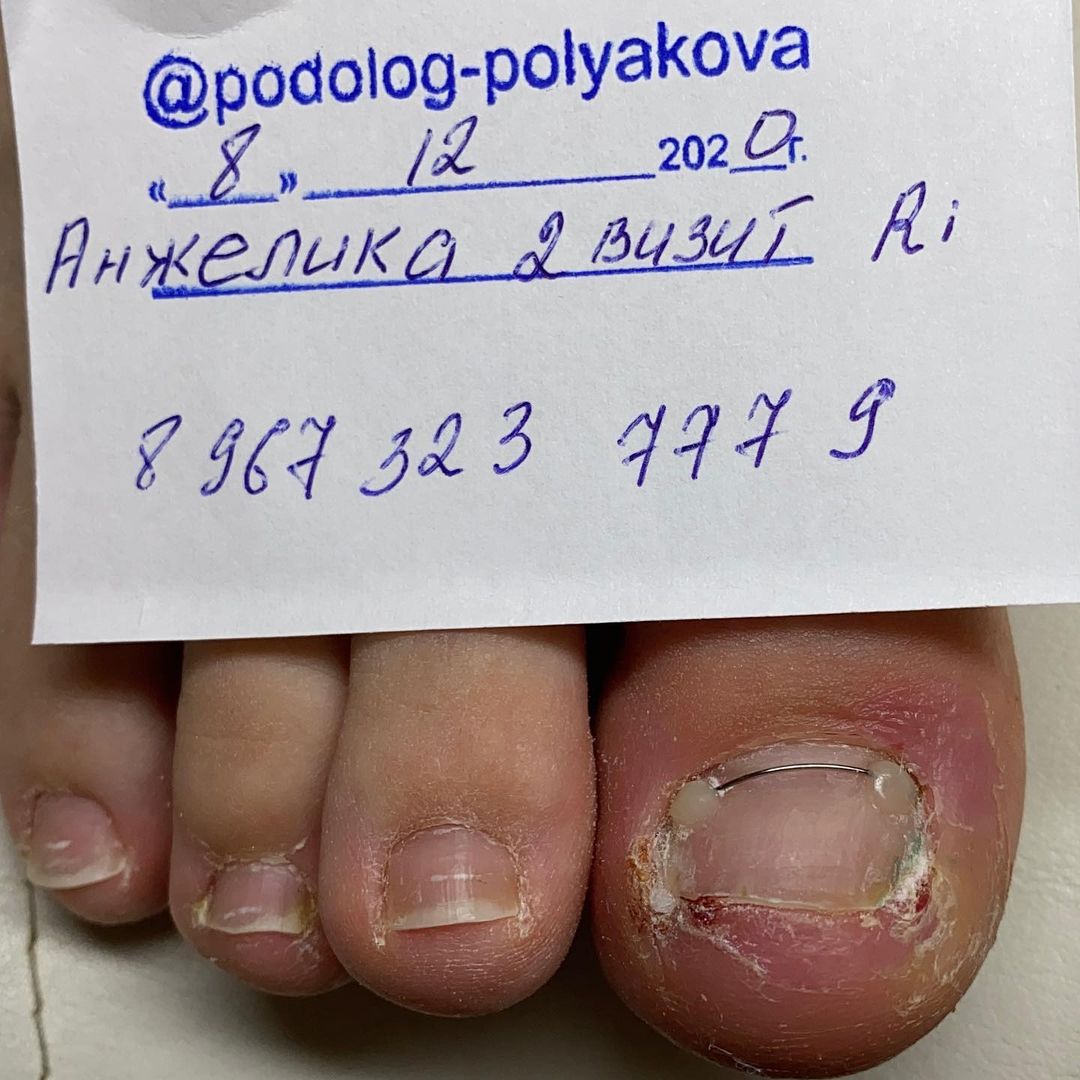 @podolog-polyakova
«8» 12 2020г.
Анжелика 2 визит Ri
8 967 323 777 9